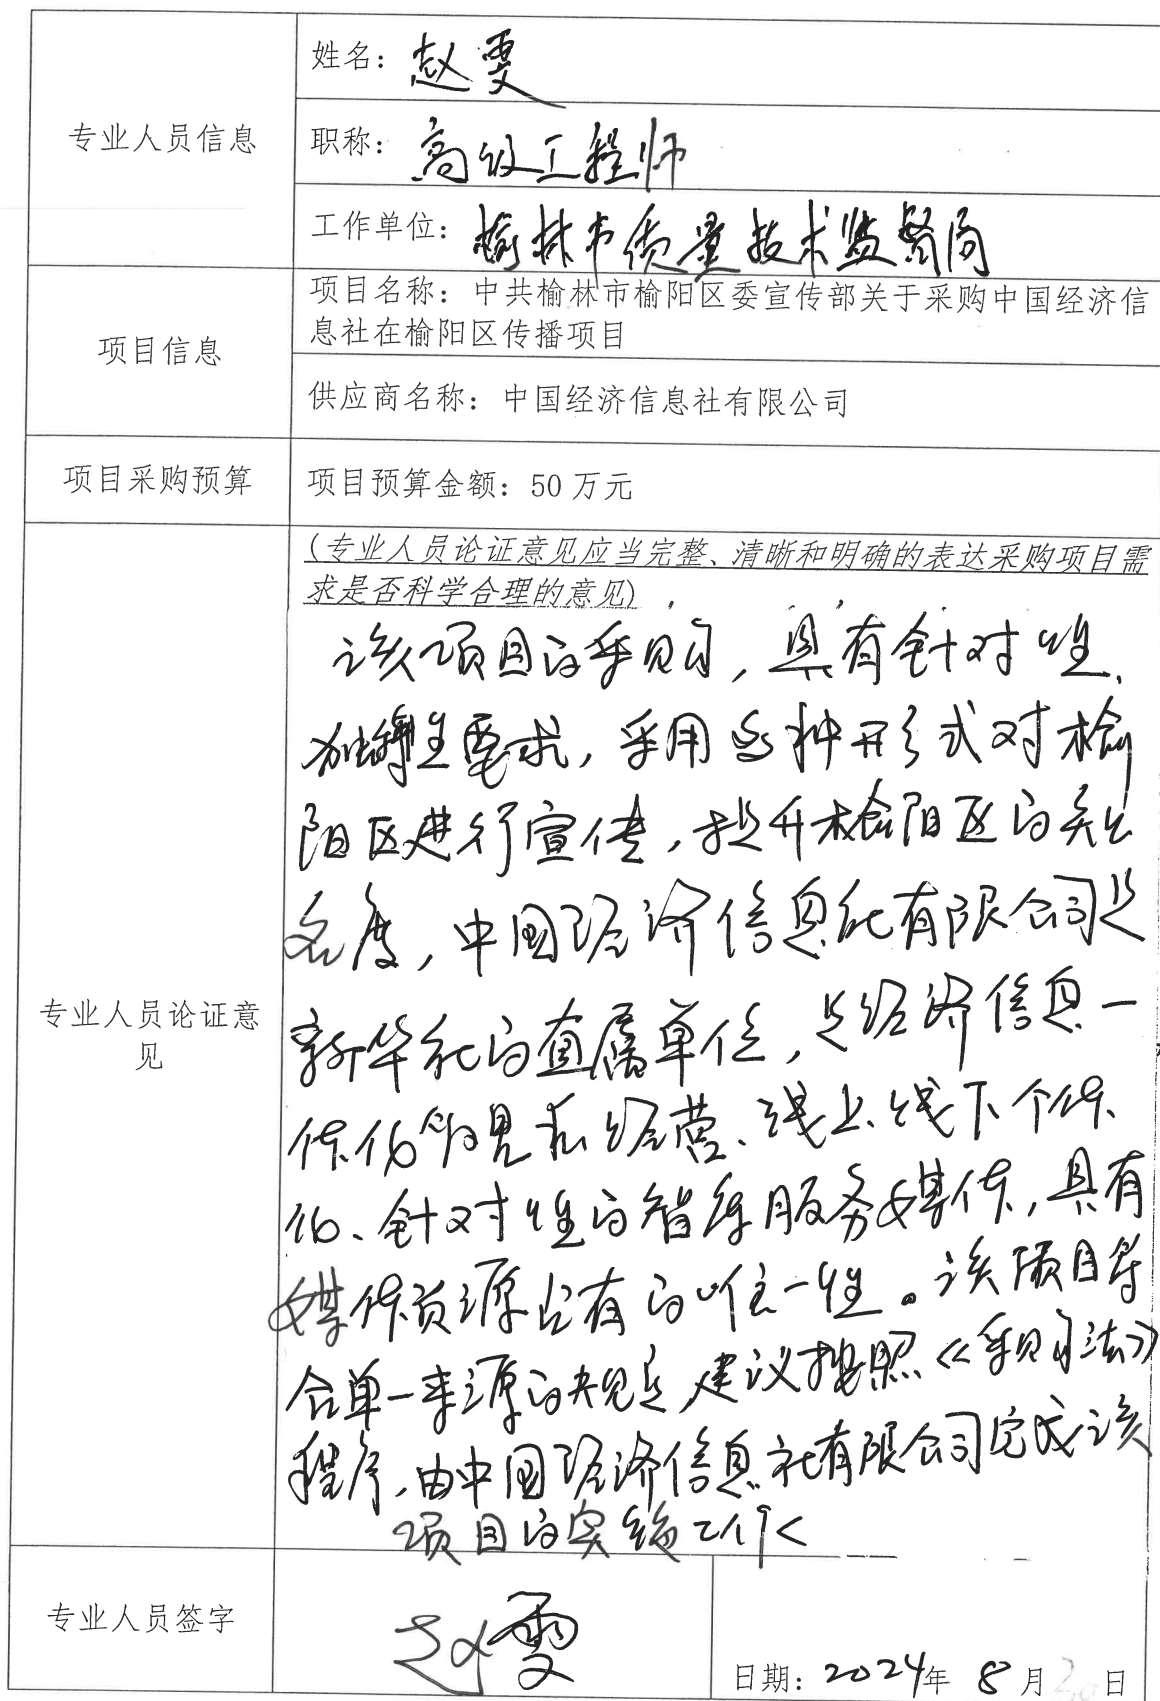 专业人员信息
姓名：赵雯
职称：高级工程师
工作单位：榆林市质量技术监督局
项目信息
项目名称：中共榆林市榆阳区委宣传部关于采购中国经济信
息社在榆阳区传播项目
供应商名称：中国经济信息社有限公司
项目采购预算
项目预算金额：50 万元
专业人员论证意
见
(专业人员论证意见应当完整、清晰和明确的表达采购项目需
求是否科学合理的意见)
该项目的采购，具有针对性、
独特性要求，采用多种形式对榆
阳区进行宣传，提升榆阳区的知
名度，中国经济信息社有限公司是
新华社的直属单位，是经济信息一
体化的 经营、线上线下个体
化、针对性的智库服务媒体，具有
媒体资源占有的唯一性。该项目符
合单一来源的规定，建议按照《采购法》
程序，由中国经济信息社有限公司完成该
项目的实施工作
专业人员签字
赵雯
日期：2024年 8 月 20 日